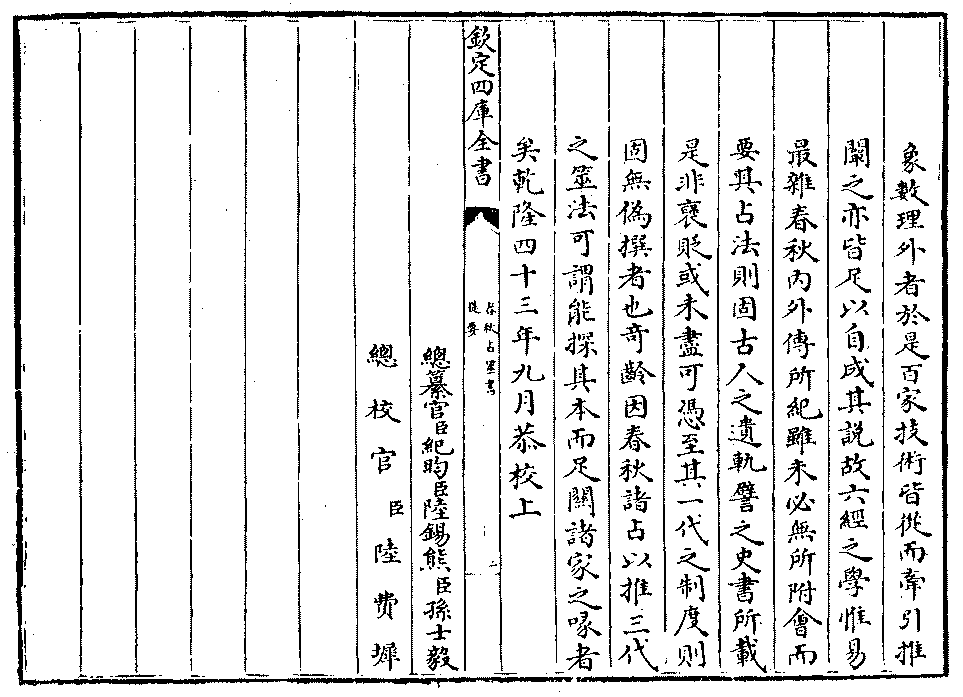 象數理外者於是百家技術皆從而牽引推
闡之亦皆足以自成其説故六經之學惟易
最雜春秋内外傳所紀雖未必無所附㑹而
要其占法則固古人之遺軌譬之史書所載
是非褒貶或未盡可憑至其一代之制度則
固無偽撰者也竒齡因春秋諸占以推三代
之筮法可謂能探其本而足關諸家之喙者
矣乾隆四十三年九月恭校上
欽定四庫全書
春秋占筮書
提要
二
總纂官臣紀昀臣陸錫熊臣孫士毅
總校官臣陸費墀